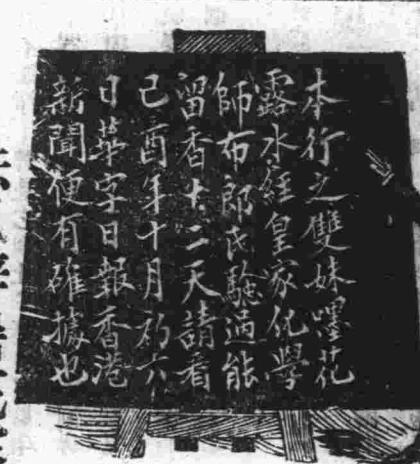 本行之雙妹嚜花
露水經皇家化學
師布郎氏驗過能
留香十二天請看
己酉年十月初六
日華字日報香港
新聞便有確據也